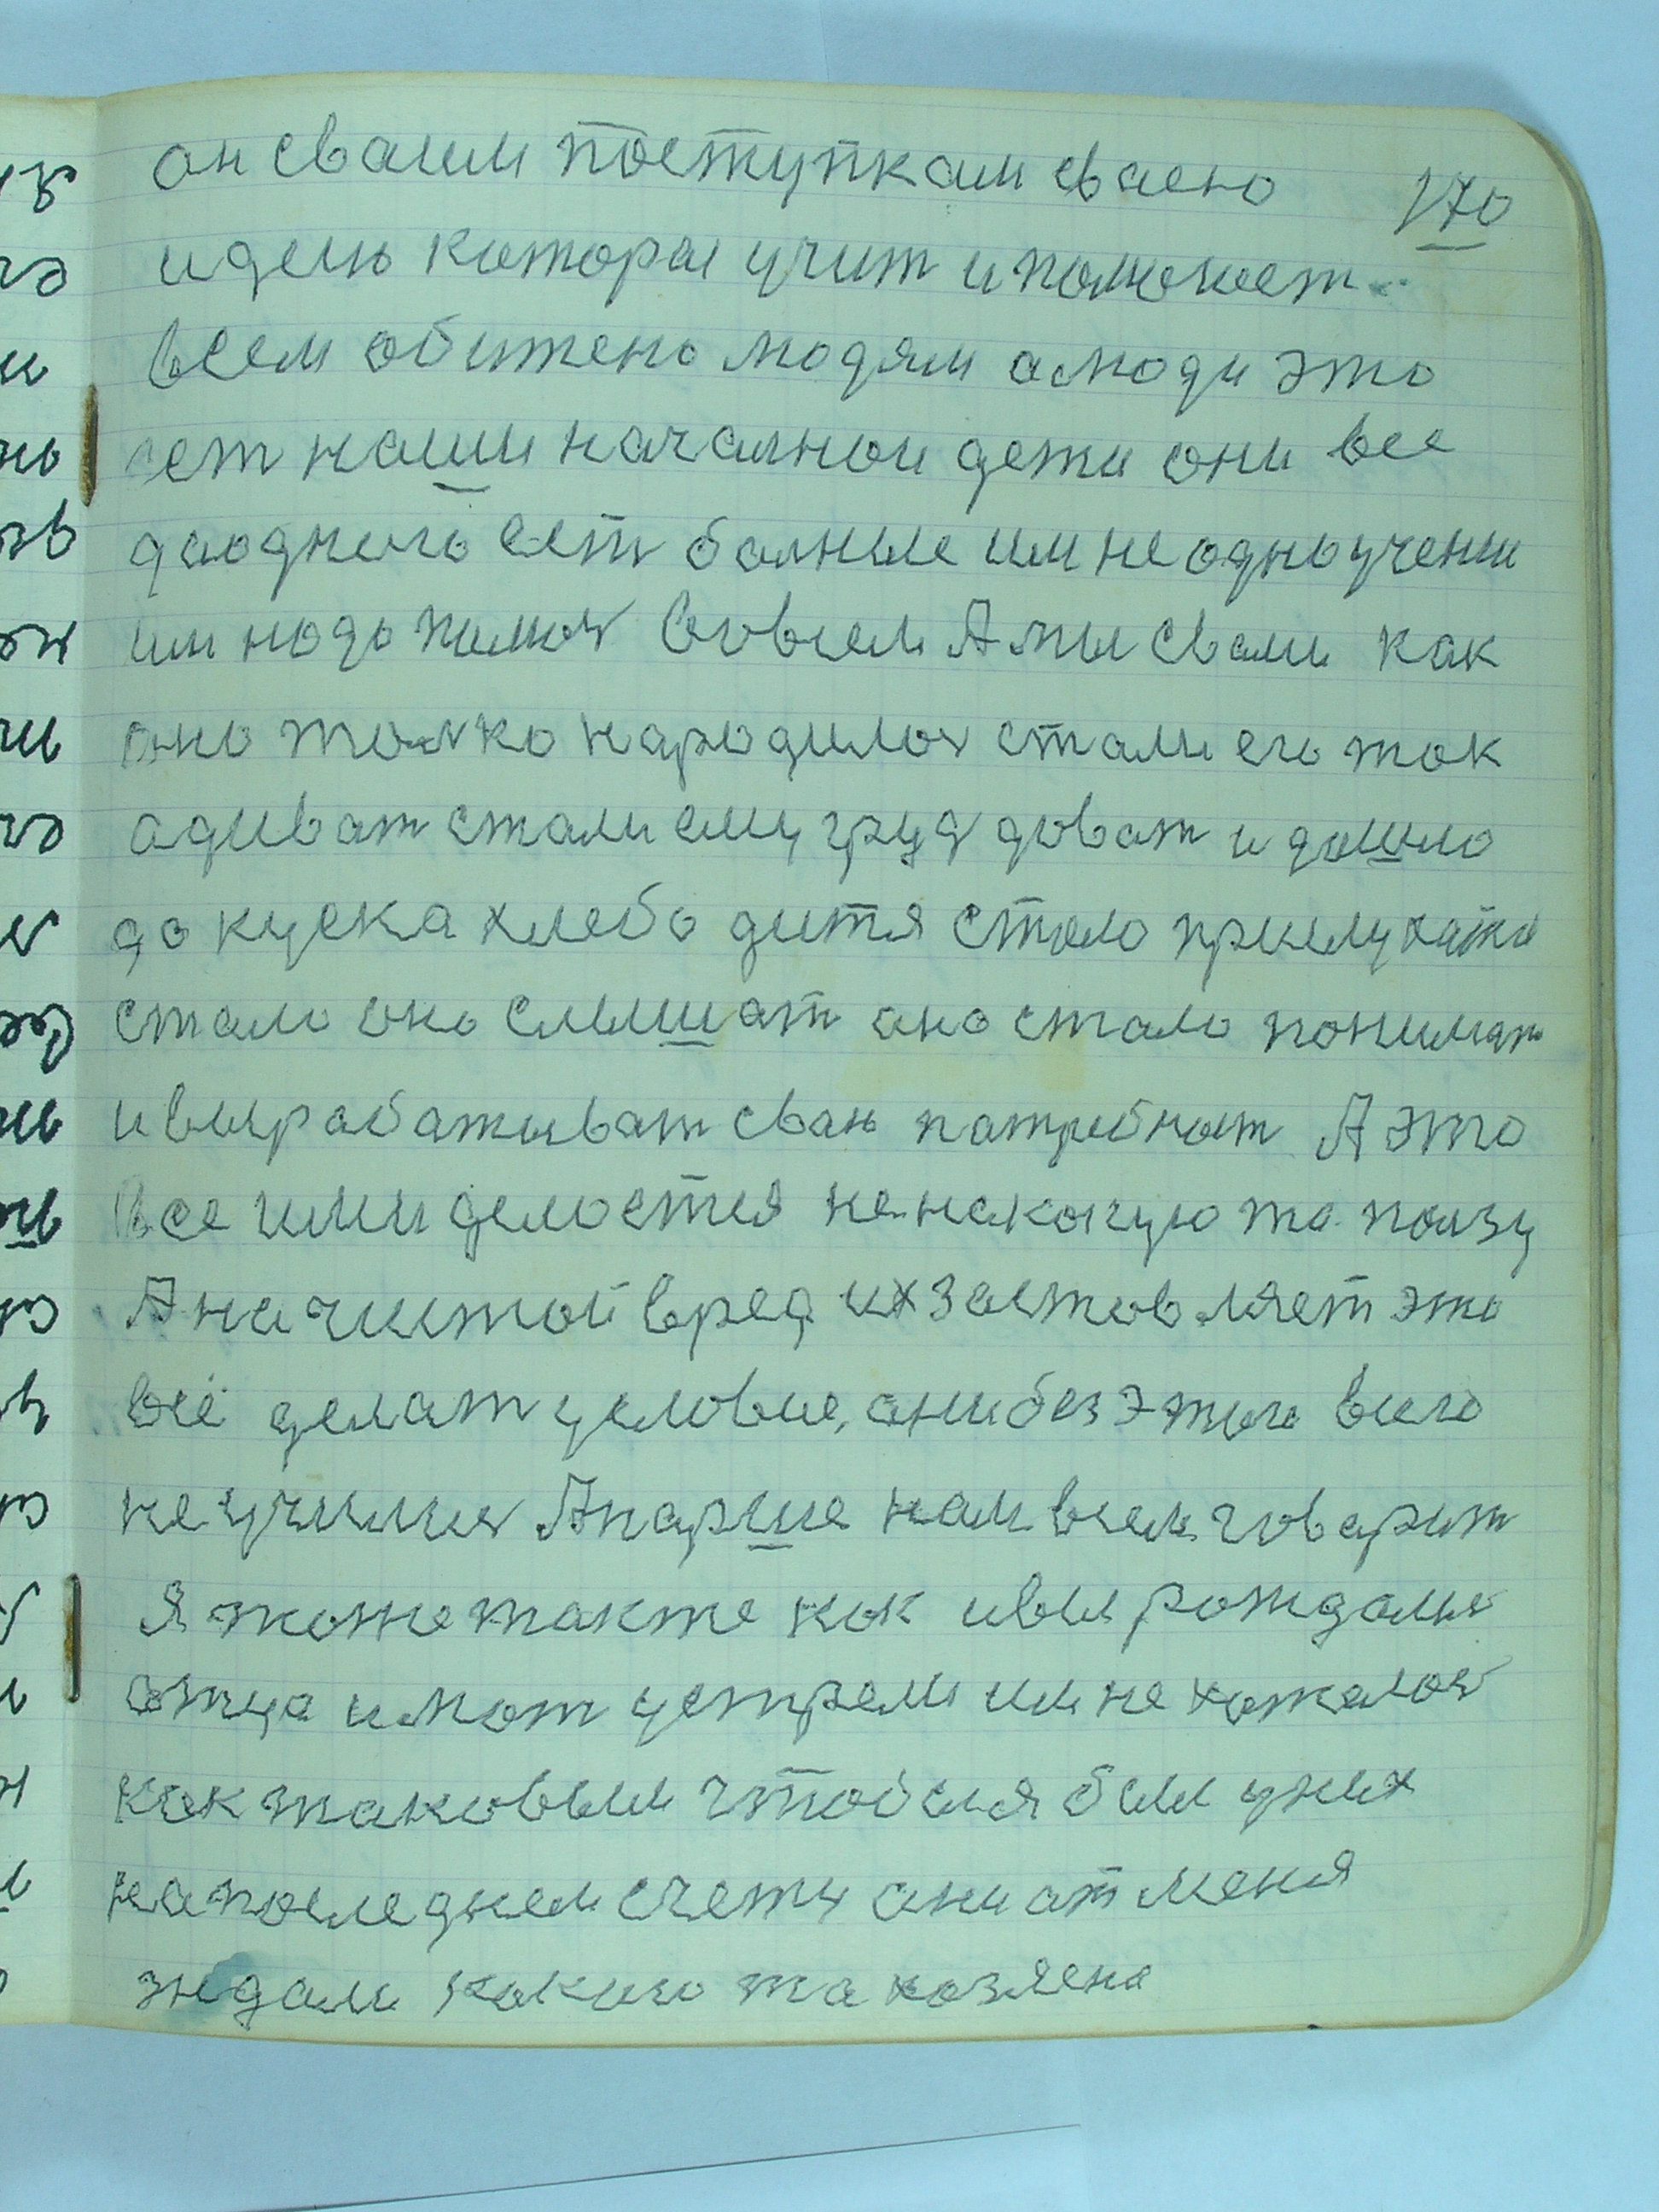 он сваим поступкам сваею
170
идею которая учит и поможет
всем обижено людям а люди это
ест наши началнои дети они все
даодного ест болные им не одно учении
им надо помоч вовсем А мы свами как
оно толко народилос стали его так
адиват стали ему груд доват и дошло
до куска хлеба дитя стало прислухатся
стало оно слышат ано стало понимат
и вырабатыват сваю патребност А это
все ими делоется не накокую та ползу
А на чистой вред их заставляет это
всё делат условие, они без этого всего
не училис А парше нам всем говарит
я тоже также как и вы рождался
отца и мат устрем им не хотелос
как таковым чтобы я был у них
на последнем счету они от меня
ждали какого та хозяена